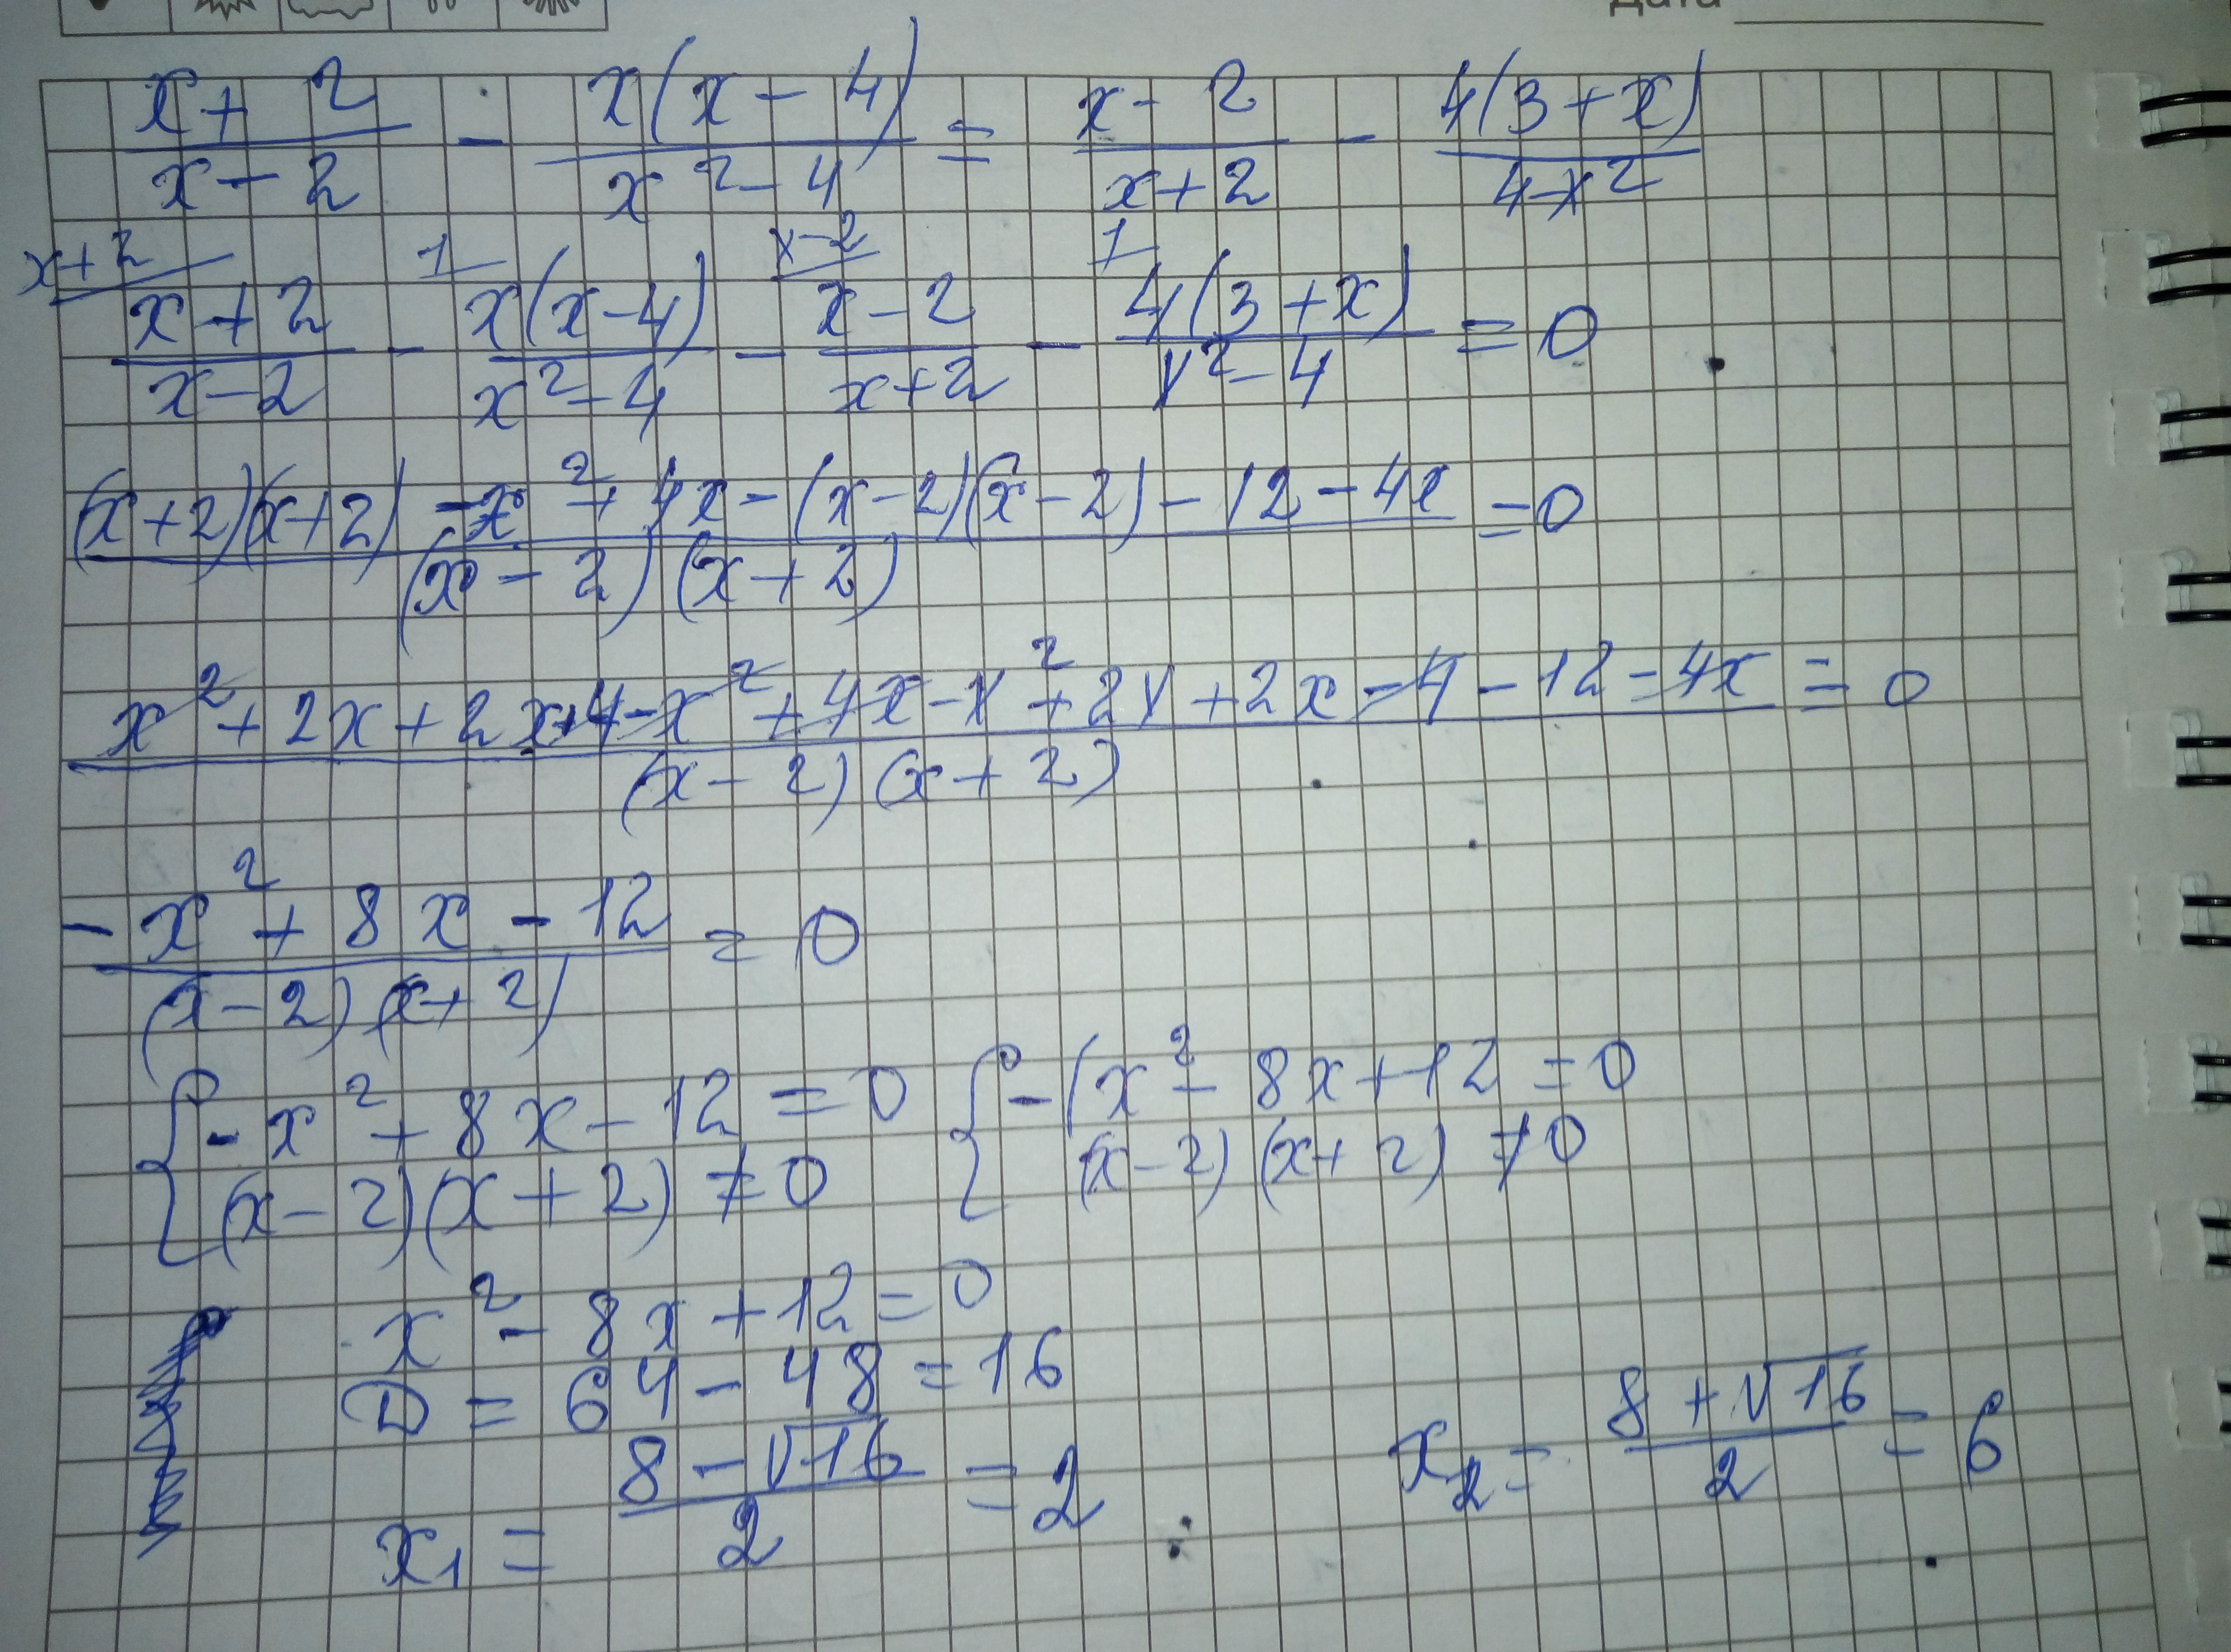 Дата
x+2/x-2 - x(x-4)/x²-4 = x-2/x+2 - 4(3+x)/4-x²
x+2 1 x-2 1
x+2/x-2 - x(x-4)/x²-4 - x-2/x+2 - 4(3+x)/x²-4 = 0
(x+2)(x+2) - x² + 4x - (x-2)(x-2) - 12 - 4x/(x-2)(x+2) = 0
x² + 2x + 2x + 4 - x² + 4x - x² + 2x + 2x - 4 - 12 - 4x/(x-2)(x+2) = 0
-x² + 8x - 12/(x-2)(x+2) = 0
{ -x² + 8x - 12 = 0 { -(x² - 8x + 12 = 0
(x-2)(x+2) ≠ 0 (x-2)(x+2) ≠ 0
x² - 8x + 12 = 0
D = 64 - 48 = 16
x₁ = 8 - √16/2 = 2 x₂ = 8 + √16/2 = 6